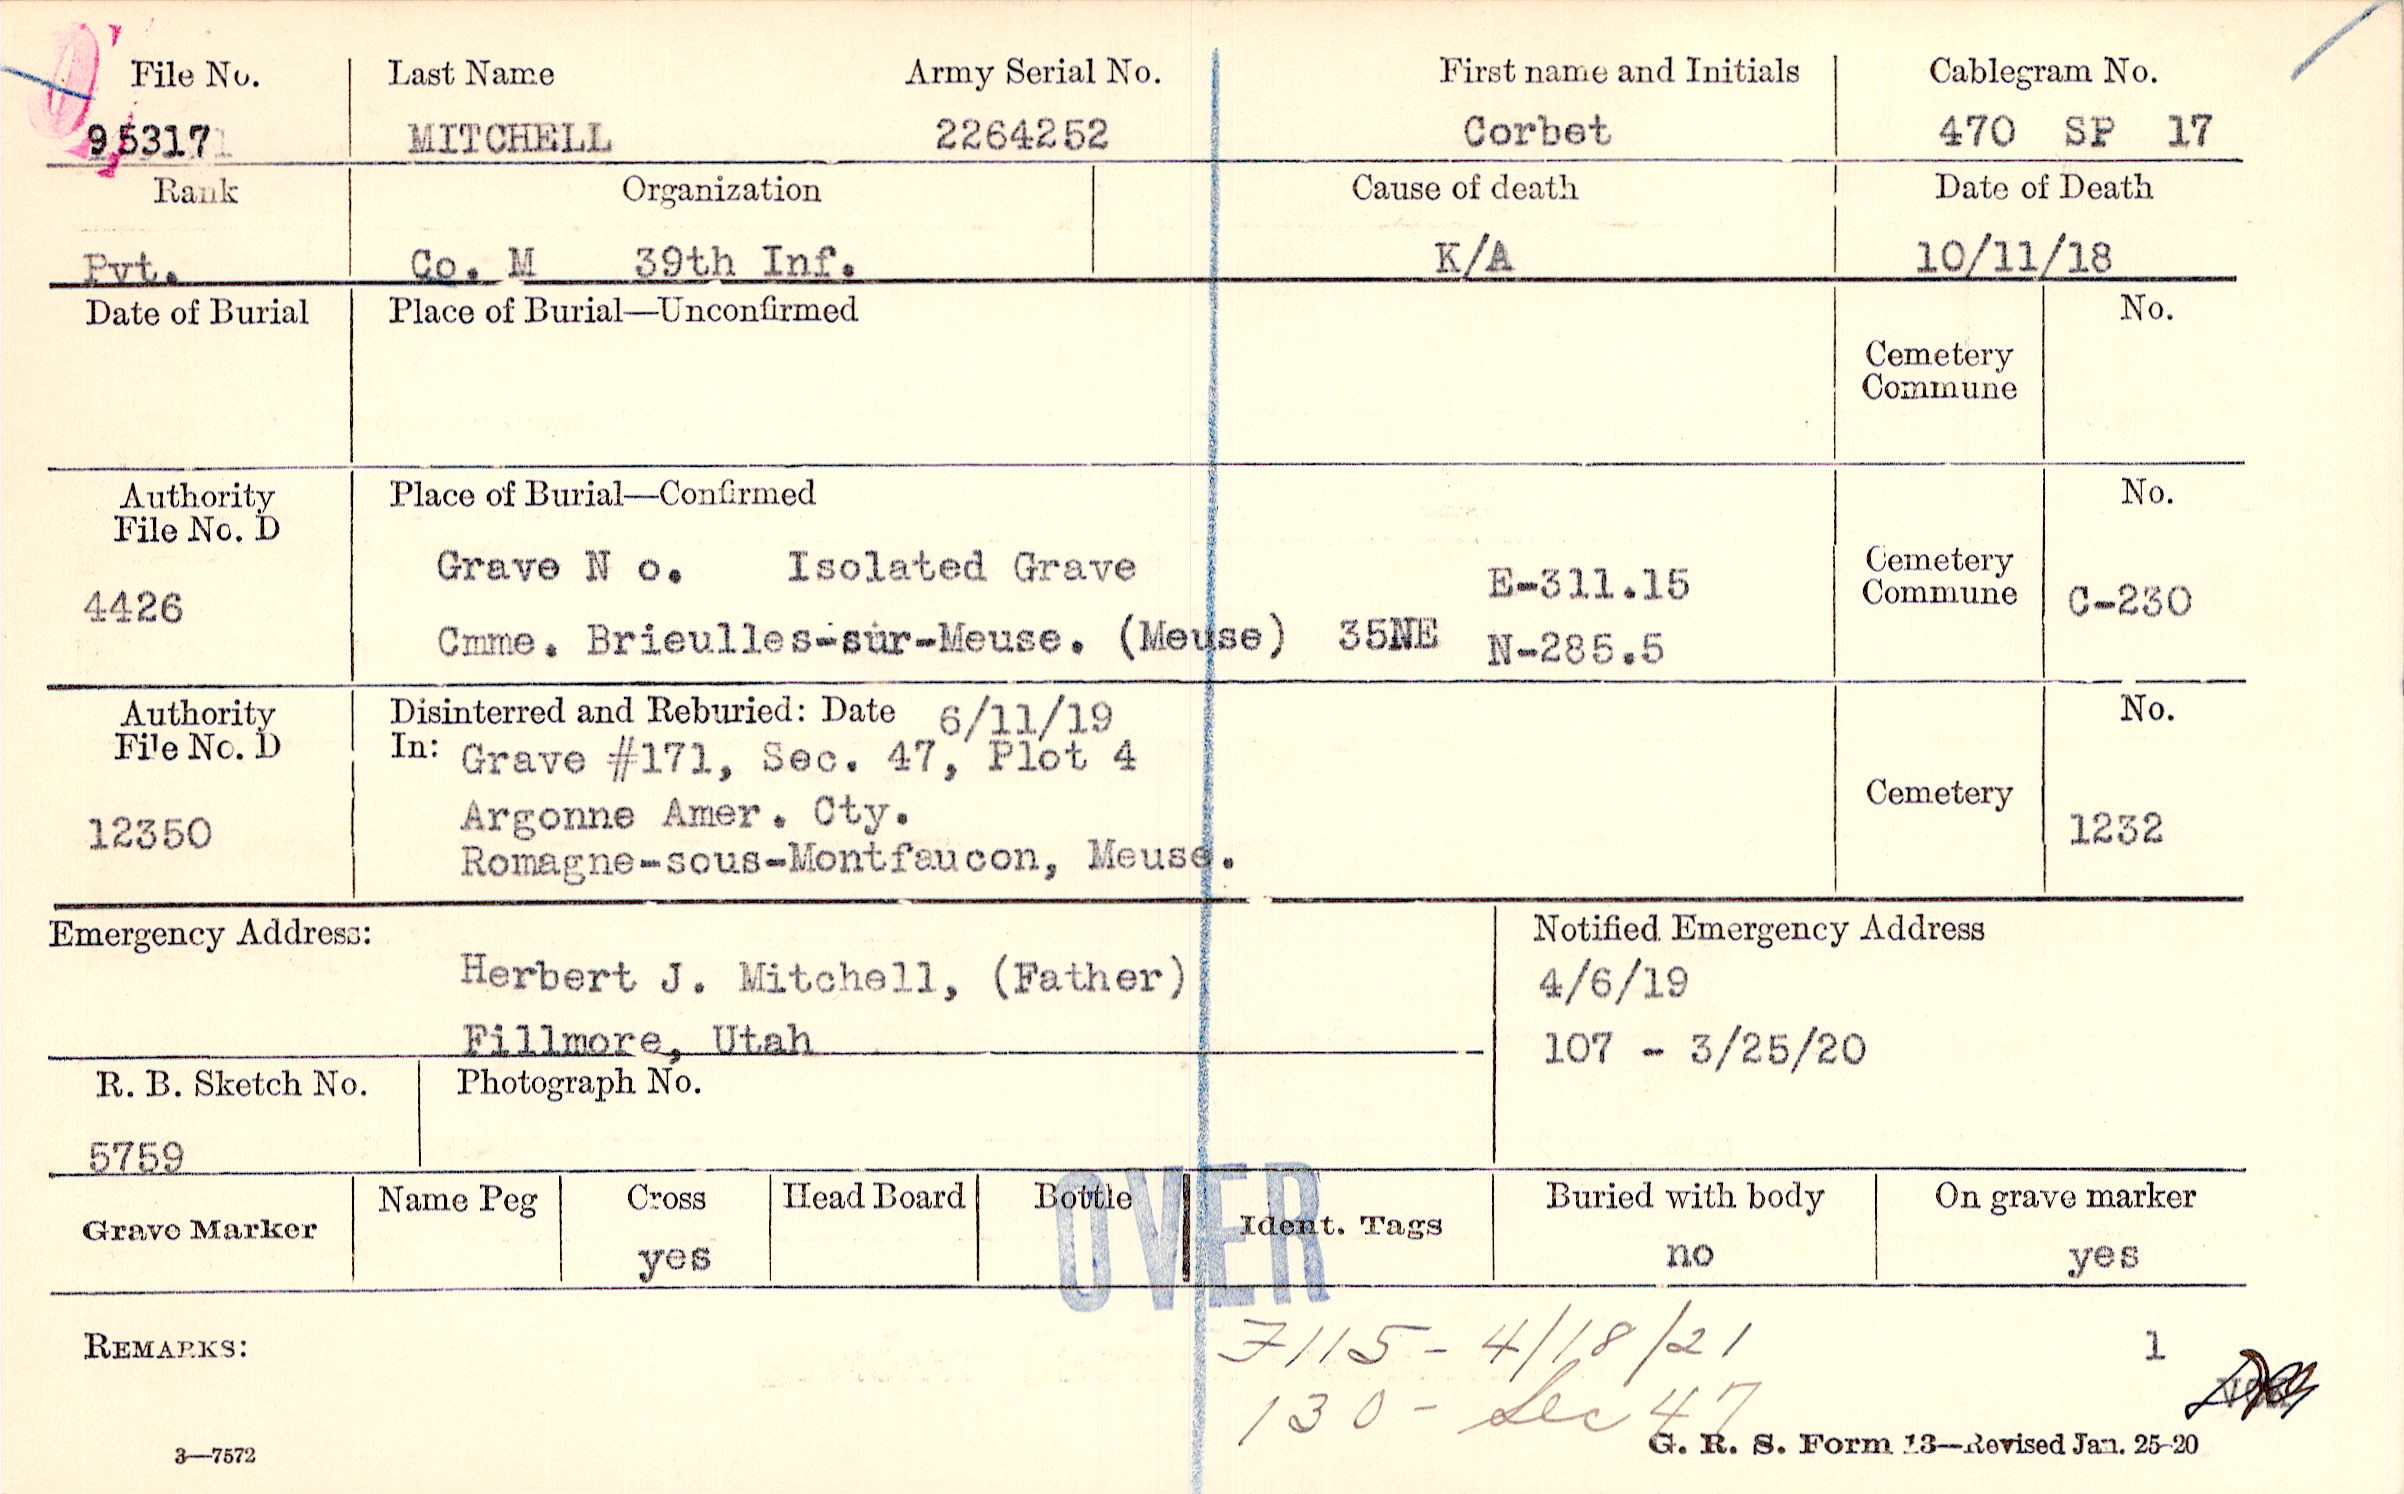 File No. Last Name Army Serial No. First name and Initials Cablegram No.
95317 MITCHELL 2264252 Corbet 470 SP 17
Rank Organization Cause of death Date of Death
Pvt. Co. M 39th Inf. K/A 10/11/18
Date of Burial Place of Burial—Unconfirmed No.
Cemetery
Commune
Authority Place of Burial—Confirmed No.
File No. D
Grave N o. Isolated Grave E-311.15 Cemetery
4426 Commune C-230
Cmme. Brieulles-sur-Meuse. (Meuse) 35NE N-285.5
Authority Disinterred and Reburied: Date 6/11/19 No.
File No. D In: Grave #171, Sec. 47, Plot 4
Cemetery
12350 Argonne Amer. Cty. 1232
Romagne-sous-Montfaucon, Meuse.
Emergency Address: Notified Emergency Address
Herbert J. Mitchell, (Father) 4/6/19
Fillmore, Utah 107 - 3/25/20
R. B. Sketch No. Photograph No.
5759
OVER
Name Peg Cross Head Board Bottle Buried with body On grave marker
Grave Marker Ident. Tags
yes no yes
REMARKS: 7115 - 4/18/21 1
130 - Sec 47
3—7572 G. R. S. Form 13—Revised Jan. 25-20